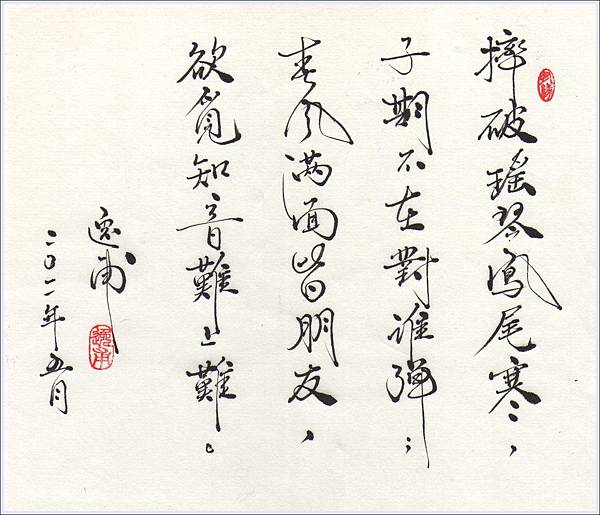 摔破瑤琴鳳尾寒，
子期不在對誰彈；
春風滿面皆朋友，
欲覓知音難上難。
逸甫
二〇一一年五月
逸甫